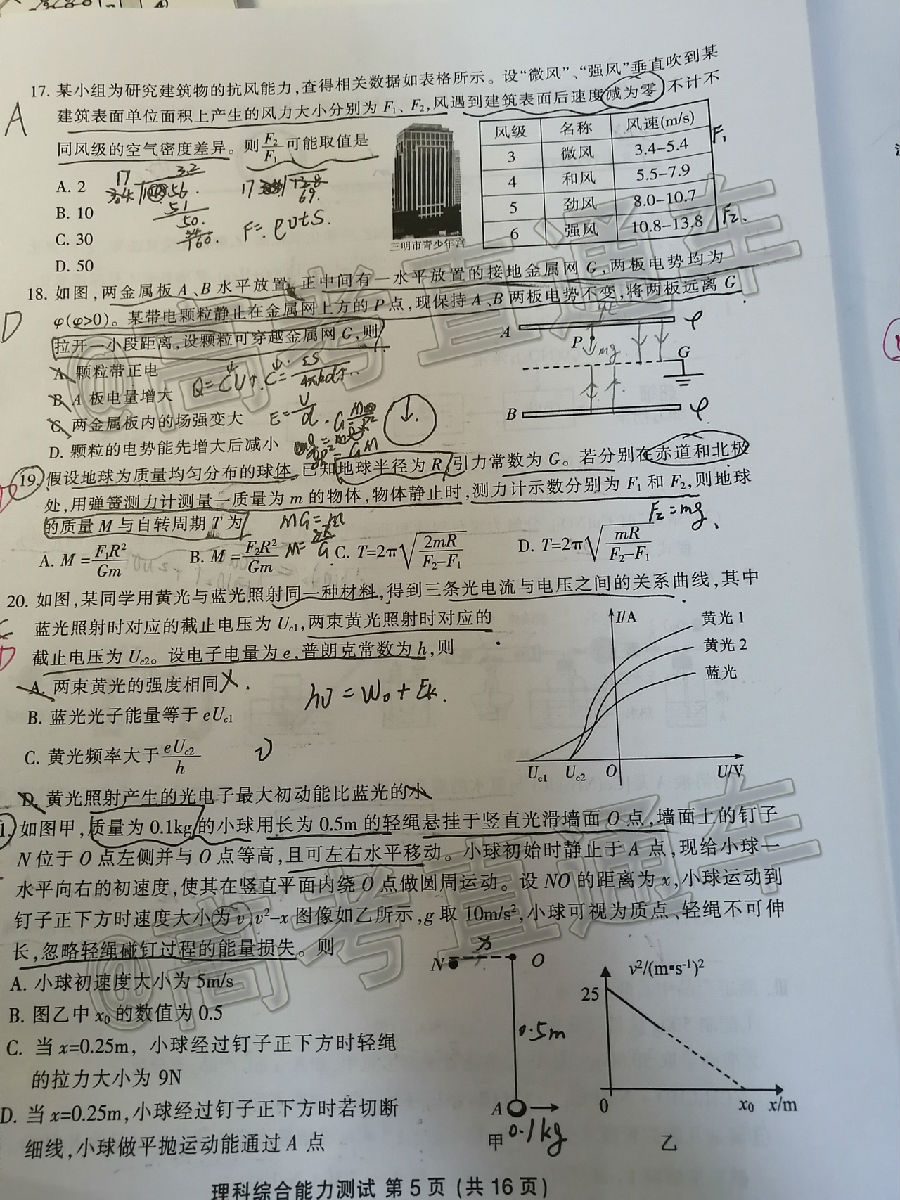 17. 某小组为研究建筑物的抗风能力,查得相关数据如表格所示。设“微风”、“强风”垂直吹到某
建筑表面单位面积上产生的风力大小分别为 F₁、F₂,风遇到建筑表面后速度减为零,不计不
同风级的空气密度差异。则 F₂/F₁ 可能取值是
A
A. 2
B. 10
C. 30
D. 50
F=ρυts.
风级 名称 风速(m/s)
3 微风 3.4–5.4
4 和风 5.5–7.9
5 劲风 8.0–10.7
6 强风 10.8–13.8
F₁
F₂
三明市青少年宫
18. 如图,两金属板 A、B 水平放置,正中间有一水平放置的接地金属网 G,两板电势均为
φ(φ>0)。某带电颗粒静止在金属网上方的 P 点,现保持 A、B 两板电势不变,将两板远离 G
拉开一小段距离,设颗粒可穿越金属网 G,则
D
A. 颗粒带正电
B. A 板电量增大
C. 两金属板内的场强变大
D. 颗粒的电势能先增大后减小
A φ
P
mg
G
B φ
19. 假设地球为质量均匀分布的球体。已知地球半径为 R,引力常数为 G。若分别在赤道和北极
处,用弹簧测力计测量一质量为 m 的物体,物体静止时,测力计示数分别为 F₁ 和 F₂,则地球
的质量 M 与自转周期 T 为
F₂=mg
A. M=F₁R²/Gm B. M=F₂R²/Gm C. T=2π√(2mR/(F₂−F₁)) D. T=2π√(mR/(F₂−F₁))
20. 如图,某同学用黄光与蓝光照射同一种材料,得到三条光电流与电压之间的关系曲线,其中
蓝光照射时对应的截止电压为 Uc1,两束黄光照射时对应的
截止电压为 Uc2。设电子电量为 e,普朗克常数为 h,则
A. 两束黄光的强度相同
B. 蓝光光子能量等于 eUc1
C. 黄光频率大于 eUc2/h
D. 黄光照射产生的光电子最大初动能比蓝光的小
hν=W₀+Ek.
I/A
黄光 1
黄光 2
蓝光
Uc1 Uc2 O U/V
1. 如图甲,质量为 0.1kg 的小球用长为 0.5m 的轻绳悬挂于竖直光滑墙面 O 点,墙面上的钉子
N 位于 O 点左侧并与 O 点等高,且可左右水平移动。小球初始时静止于 A 点,现给小球一
水平向右的初速度,使其在竖直平面内绕 O 点做圆周运动。设 NO 的距离为 x,小球运动到
钉子正下方时速度大小为 v,v²–x 图像如乙所示,g 取 10m/s²,小球可视为质点、轻绳不可伸
长,忽略轻绳碰钉过程的能量损失。则
A. 小球初速度大小为 5m/s
B. 图乙中 x₀ 的数值为 0.5
C. 当 x=0.25m, 小球经过钉子正下方时轻绳
的拉力大小为 9N
D. 当 x=0.25m,小球经过钉子正下方时若切断
细线,小球做平抛运动能通过 A 点
N x O
0.5m
A
0.1kg
甲
v²/(m·s⁻¹)²
25
0 x₀ x/m
乙
@高考直通车
@高考直通车
理科综合能力测试 第 5 页 (共 16 页)